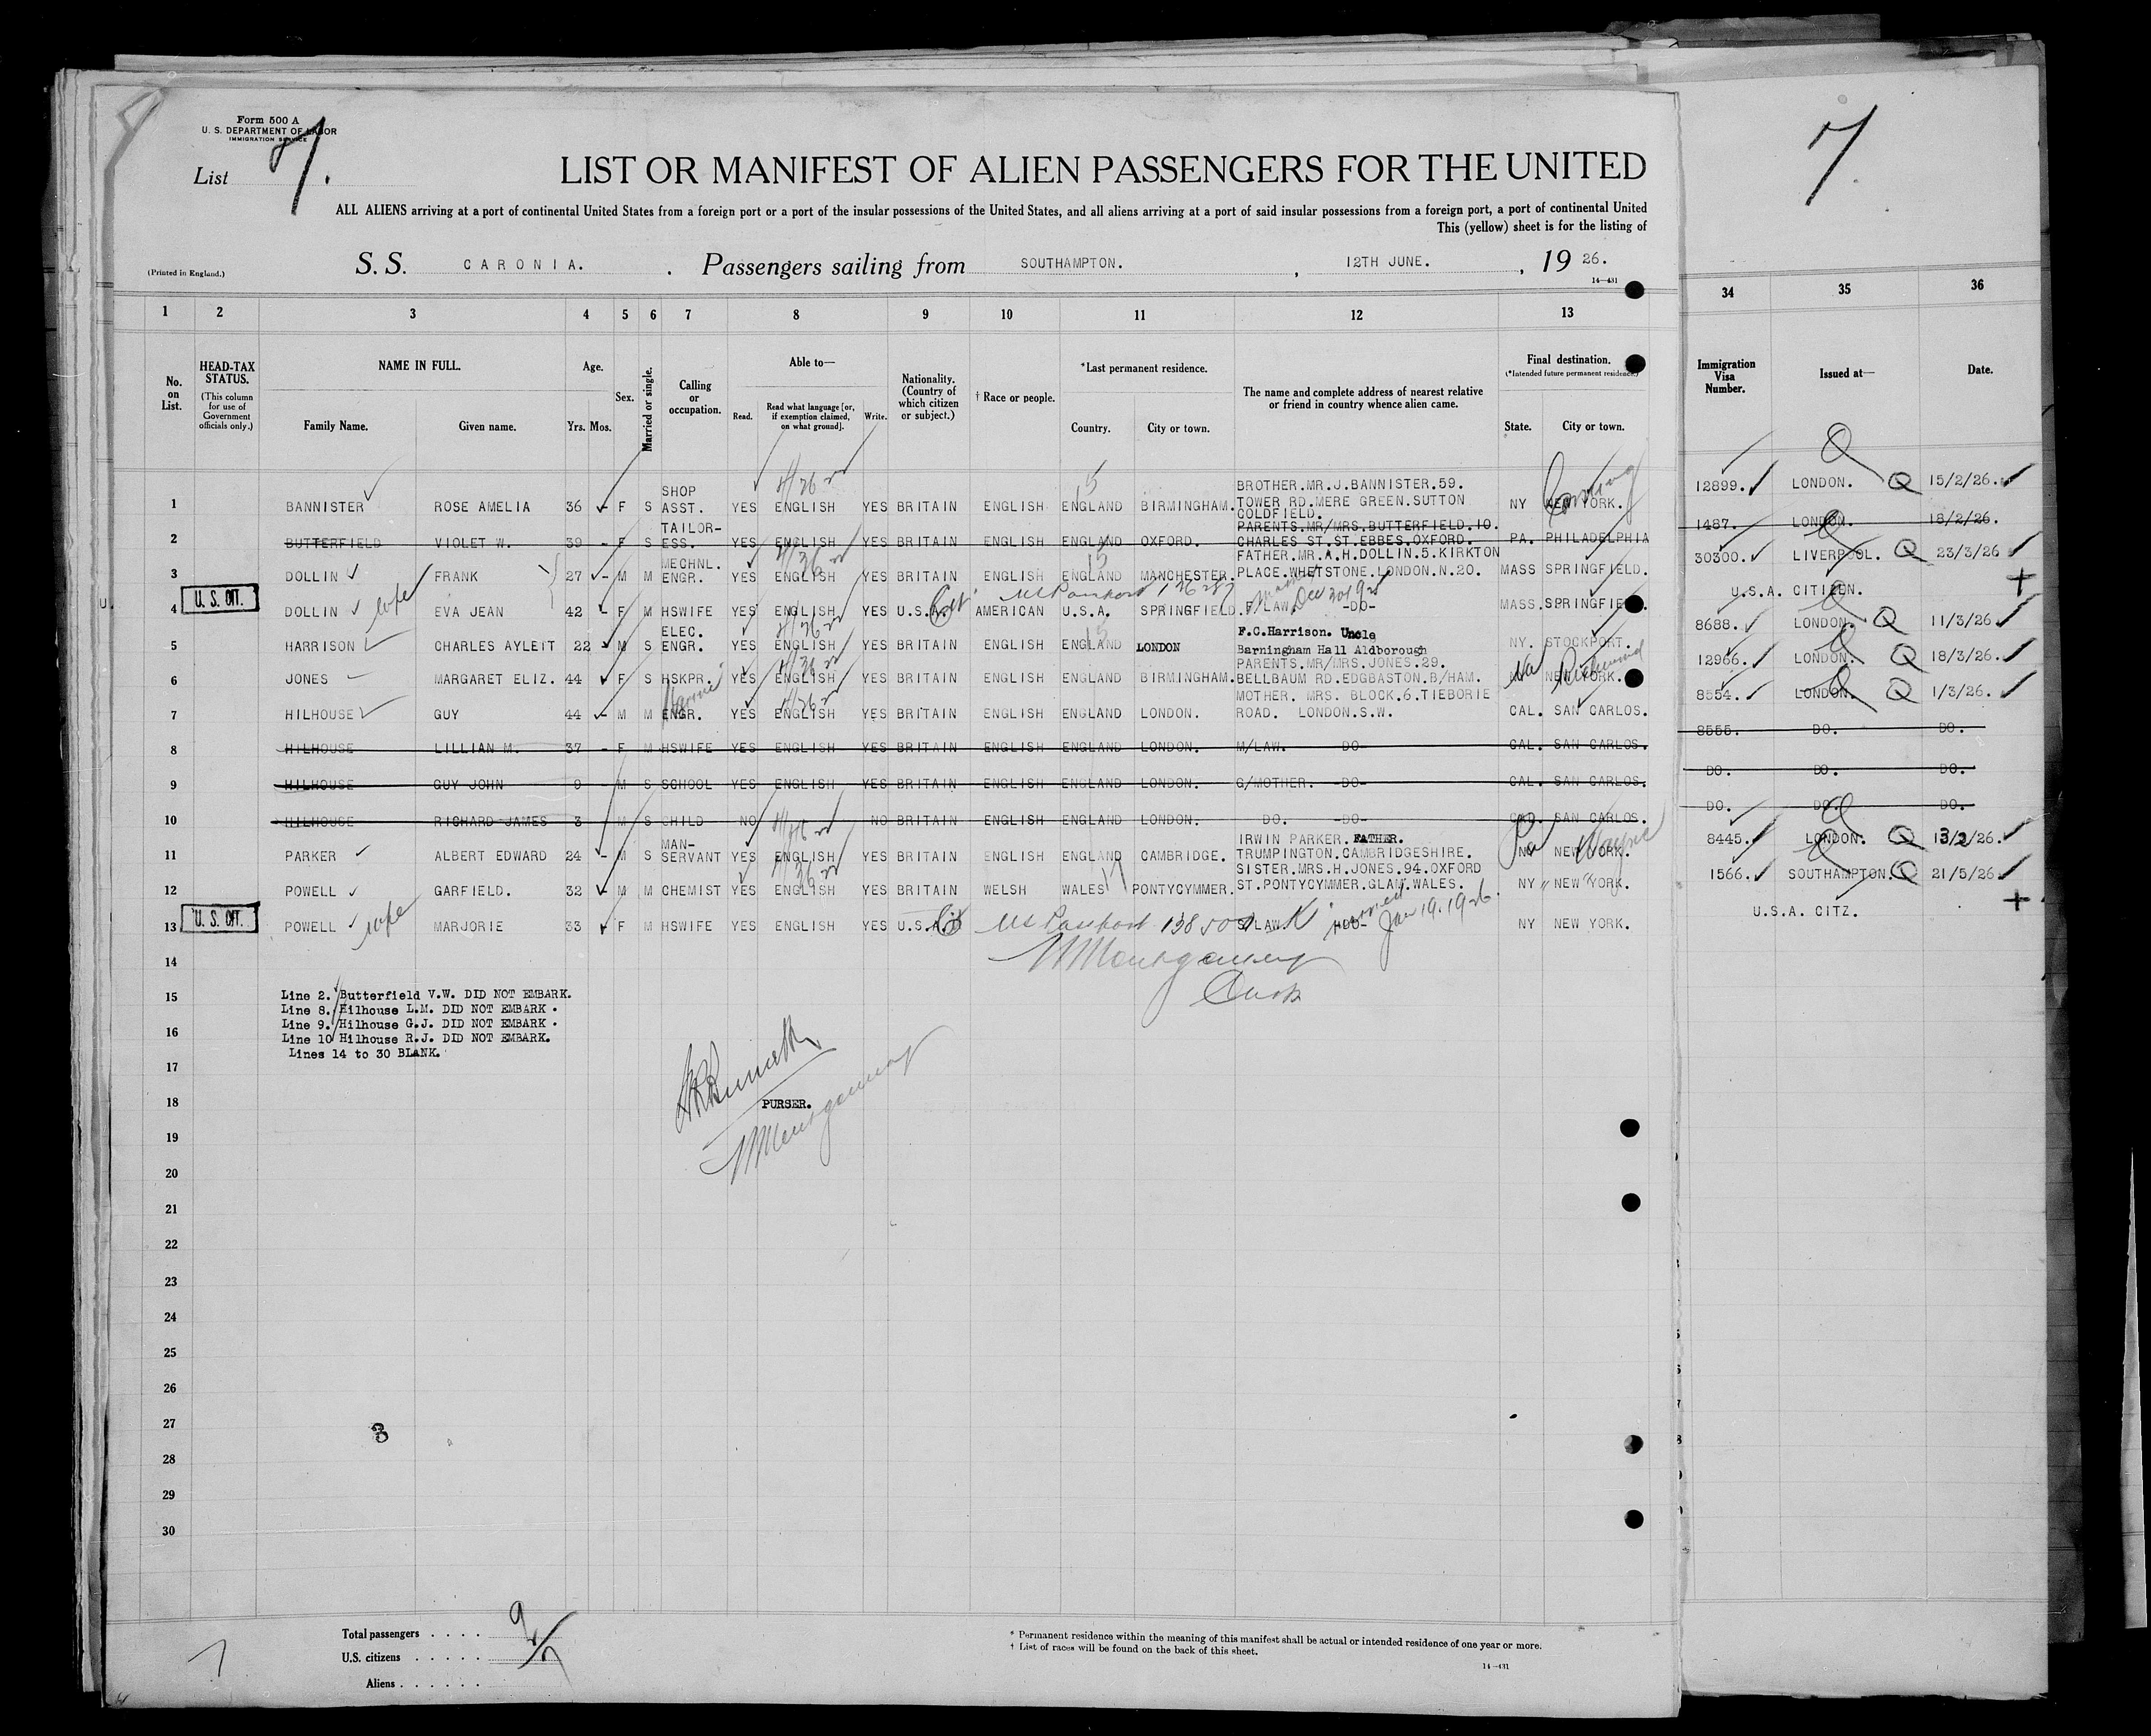 Form 500 A
U. S. DEPARTMENT OF LABOR
IMMIGRATION SERVICE
List 7.
7
LIST OR MANIFEST OF ALIEN PASSENGERS FOR THE UNITED
ALL ALIENS arriving at a port of continental United States from a foreign port or a port of the insular possessions of the United States, and all aliens arriving at a port of said insular possessions from a foreign port, a port of continental United
This (yellow) sheet is for the listing of
(Printed in England.) S. S. CARONIA. . Passengers sailing from SOUTHAMPTON. , 12TH JUNE. , 19 26.
14—431
1 2 3 4 5 6 7 8 9 10 11 12 13 34 35 36
No. on List.
HEAD-TAX STATUS.
(This column for use of Government officials only.)
NAME IN FULL.
Family Name. Given name.
Age.
Yrs. Mos.
Sex.
Married or single.
Calling or occupation.
Able to—
Read. Read what language [or, if exemption claimed, on what ground]. Write.
Nationality. (Country of which citizen or subject.)
† Race or people.
*Last permanent residence.
Country. City or town.
The name and complete address of nearest relative or friend in country whence alien came.
Final destination.
(*Intended future permanent residence.)
State. City or town.
Immigration Visa Number.
Issued at—
Date.
1 BANNISTER ROSE AMELIA 36 - F S SHOP ASST. YES ENGLISH YES BRITAIN ENGLISH ENGLAND BIRMINGHAM. BROTHER.MR.J.BANNISTER.59. TOWER RD.MERE GREEN.SUTTON COLDFIELD. NY NEW YORK. 12899. LONDON. Q 15/2/26.
2 BUTTERFIELD VIOLET W. 39 - F S TAILOR-ESS. YES ENGLISH YES BRITAIN ENGLISH ENGLAND OXFORD. PARENTS.MR/MRS.BUTTERFIELD.10. CHARLES ST.ST.EBBES.OXFORD. PA. PHILADELPHIA 1487. LONDON. 18/2/26.
3 DOLLIN FRANK 27 - M M MECHNL. ENGR. YES ENGLISH YES BRITAIN ENGLISH ENGLAND MANCHESTER. FATHER.MR.A.H.DOLLIN.5.KIRKTON PLACE.WHETSTONE.LONDON.N.20. MASS SPRINGFIELD. 30300. LIVERPOOL. Q 23/3/26
U. S. CIT.
4 DOLLIN wife EVA JEAN 42 - F M HSWIFE YES ENGLISH YES U.S.A. Cit AMERICAN U.S.A. SPRINGFIELD. F/LAW. -DO- MASS. SPRINGFIELD U.S.A. CITIZEN.
US Passport
5 HARRISON CHARLES AYLEIT 22 - M S ELEC. ENGR. YES ENGLISH YES BRITAIN ENGLISH ENGLAND LONDON F.C.Harrison. Uncle Barningham Hall Aldborough NY. STOCKPORT. 8688. LONDON. Q 11/3/26
6 JONES MARGARET ELIZ. 44 - F S HSKPR. YES ENGLISH YES BRITAIN ENGLISH ENGLAND BIRMINGHAM. PARENTS.MR/MRS.JONES.29. BELLBAUM RD.EDGBASTON.B/HAM. Va NEW YORK. Richmond 12966. LONDON. Q 18/3/26.
7 HILHOUSE GUY 44 - M M ENGR. YES ENGLISH YES BRITAIN ENGLISH ENGLAND LONDON. MOTHER. MRS. BLOCK.6.TIEBORIE ROAD. LONDON.S.W. CAL. SAN CARLOS. 8554. LONDON. Q 1/3/26.
8 HILHOUSE LILLIAN M. 37 - F M HSWIFE YES ENGLISH YES BRITAIN ENGLISH ENGLAND LONDON. M/LAW. -DO- CAL. SAN CARLOS. 8555. DO. DO.
9 HILHOUSE GUY JOHN 9 - M S SCHOOL YES ENGLISH YES BRITAIN ENGLISH ENGLAND LONDON. G/MOTHER. -DO- CAL. SAN CARLOS. DO. DO. DO.
10 HILHOUSE RICHARD JAMES 3 M S CHILD NO NO BRITAIN ENGLISH ENGLAND LONDON. DO. -DO- CAL. SAN CARLOS. DO. DO. DO.
11 PARKER ALBERT EDWARD 24 - M S MAN-SERVANT YES ENGLISH YES BRITAIN ENGLISH ENGLAND CAMBRIDGE. IRWIN PARKER. FATHER. TRUMPINGTON.CAMBRIDGESHIRE. Pa NY NEW YORK. Wayne 8445. LONDON. Q
12 POWELL GARFIELD. 32 - M M CHEMIST YES ENGLISH YES BRITAIN WELSH WALES PONTYCYMMER. SISTER.MRS.H.JONES.94.OXFORD ST.PONTYCYMMER.GLAM.WALES. NY NEW YORK. 1566. SOUTHAMPTON. Q 21/5/26
U. S. CIT.
13 POWELL wife MARJORIE 33 - F M HSWIFE YES ENGLISH YES U.S.A. Cit US Passport S/LAW. -DO- married Jan 19. 1926. NY NEW YORK. U.S.A. CITZ.
14
Montgomery
15
Line 2. Butterfield V.W. DID NOT EMBARK.
Line 8. Hilhouse L.M. DID NOT EMBARK .
Line 9. Hilhouse G.J. DID NOT EMBARK .
16
Line 10 Hilhouse R.J. DID NOT EMBARK.
Lines 14 to 30 BLANK.
17
18 PURSER.
Montgomery
19
20
21
22
23
24
25
26
27 3
28
29
30
Total passengers . . . . 9
U.S. citizens . . . . . 2
Aliens . . . . . .
* Permanent residence within the meaning of this manifest shall be actual or intended residence of one year or more.
† List of races will be found on the back of this sheet.
14—431